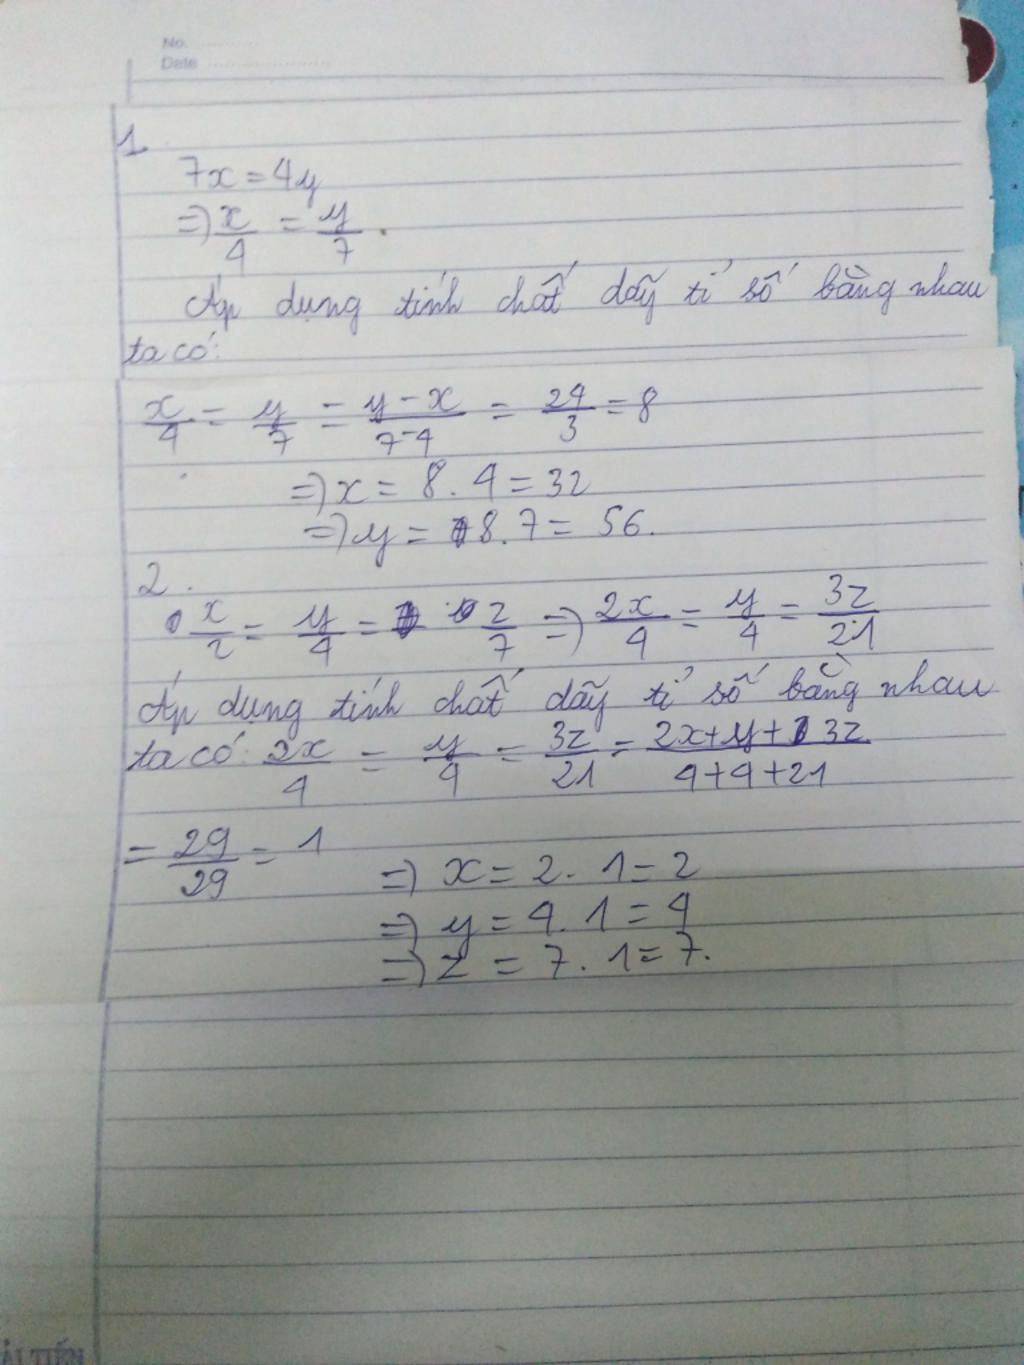 No.
Date
1.
7x = 4y
=> x/4 = y/7.
Áp dụng tính chất dãy tỉ số bằng nhau
ta có:
x/4 = y/7 = y-x/7-4 = 24/3 = 8
=> x = 8.4 = 32
=> y = 8.7 = 56.
2.
x/2 = y/4 = z/7 => 2x/4 = y/4 = 3z/21
Áp dụng tính chất dãy tỉ số bằng nhau
ta có: 2x/4 = y/4 = 3z/21 = 2x+y+3z/4+4+21
= 29/29 = 1
=> x = 2.1 = 2
=> y = 4.1 = 4
=> z = 7.1 = 7.